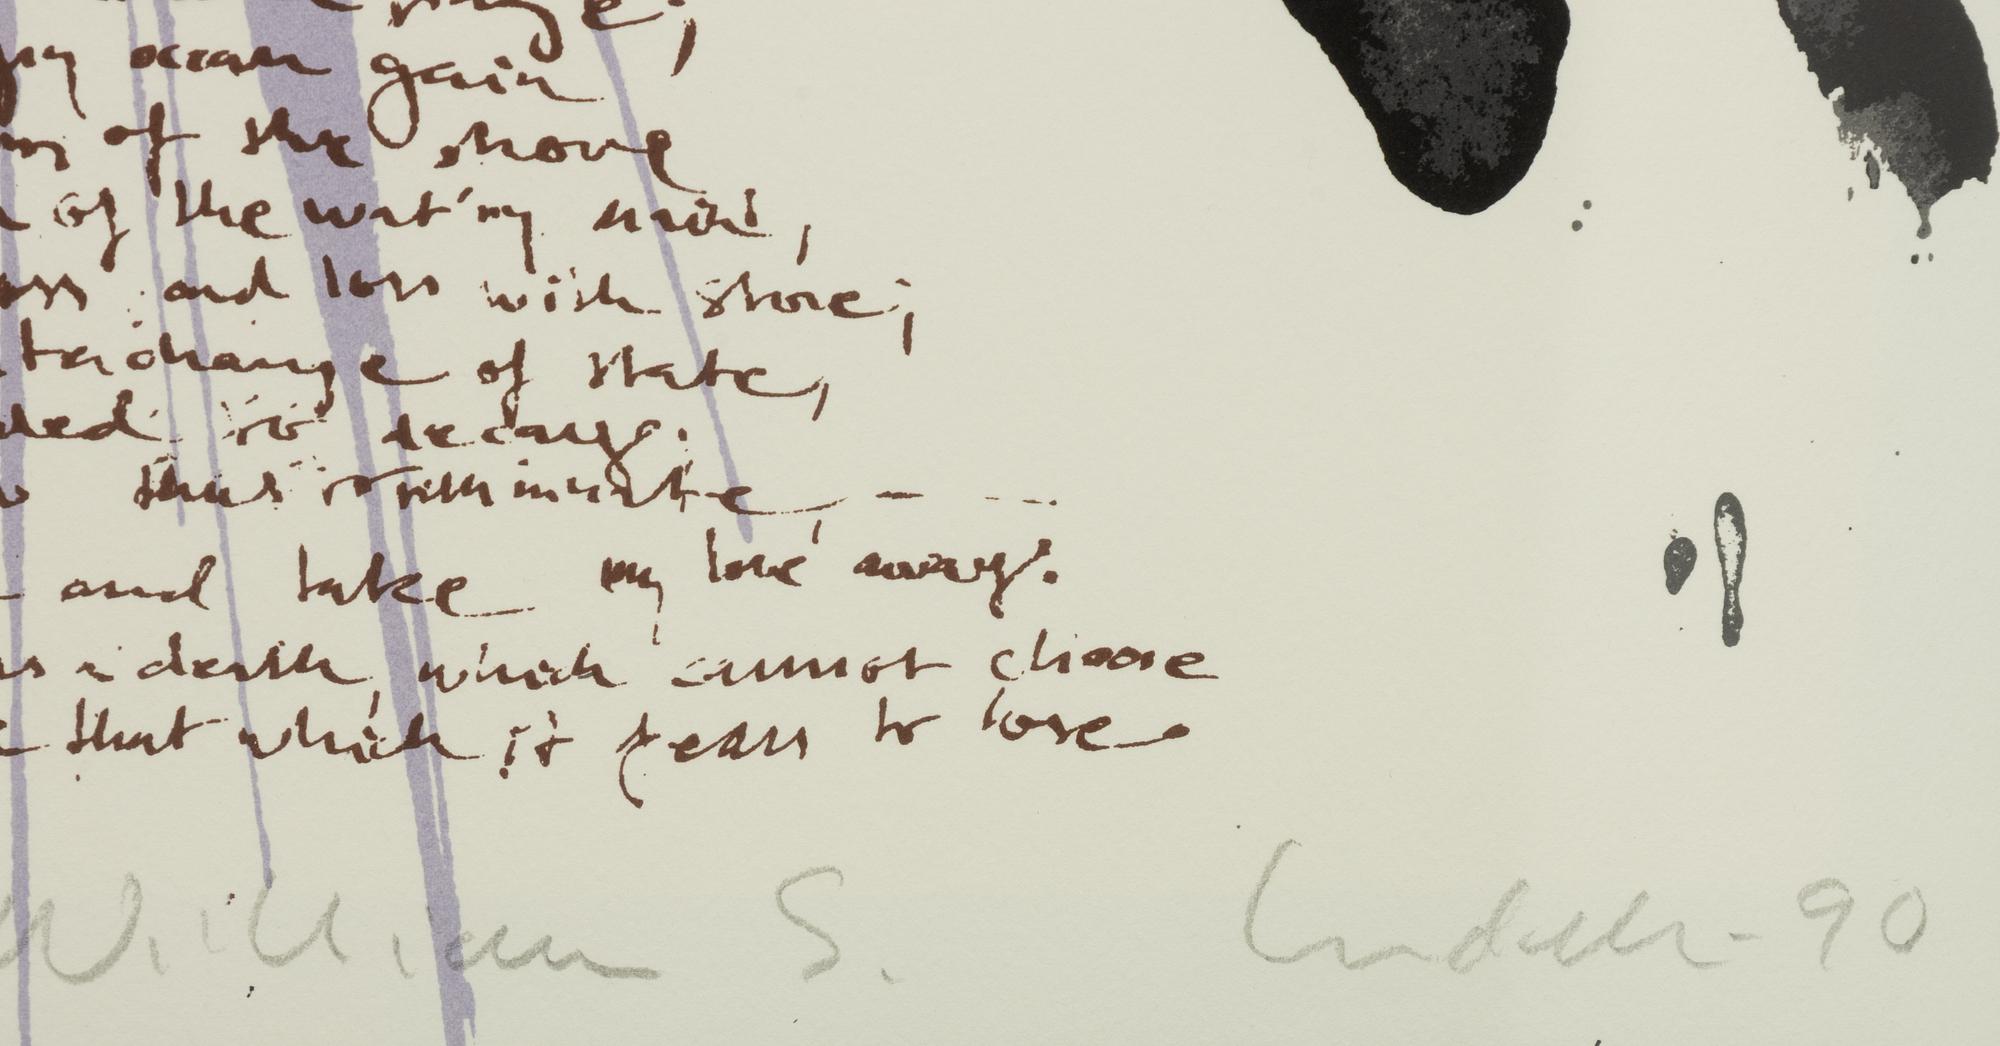 rage;
gry ocean gain
om of the shore
n of the wat'ry main,
oss and loss with store;
terchange of state,
ded to decay.
thus ruminate, — —
and take my love away.
as a death, which cannot choose
that which it fears to lose
William S. -90